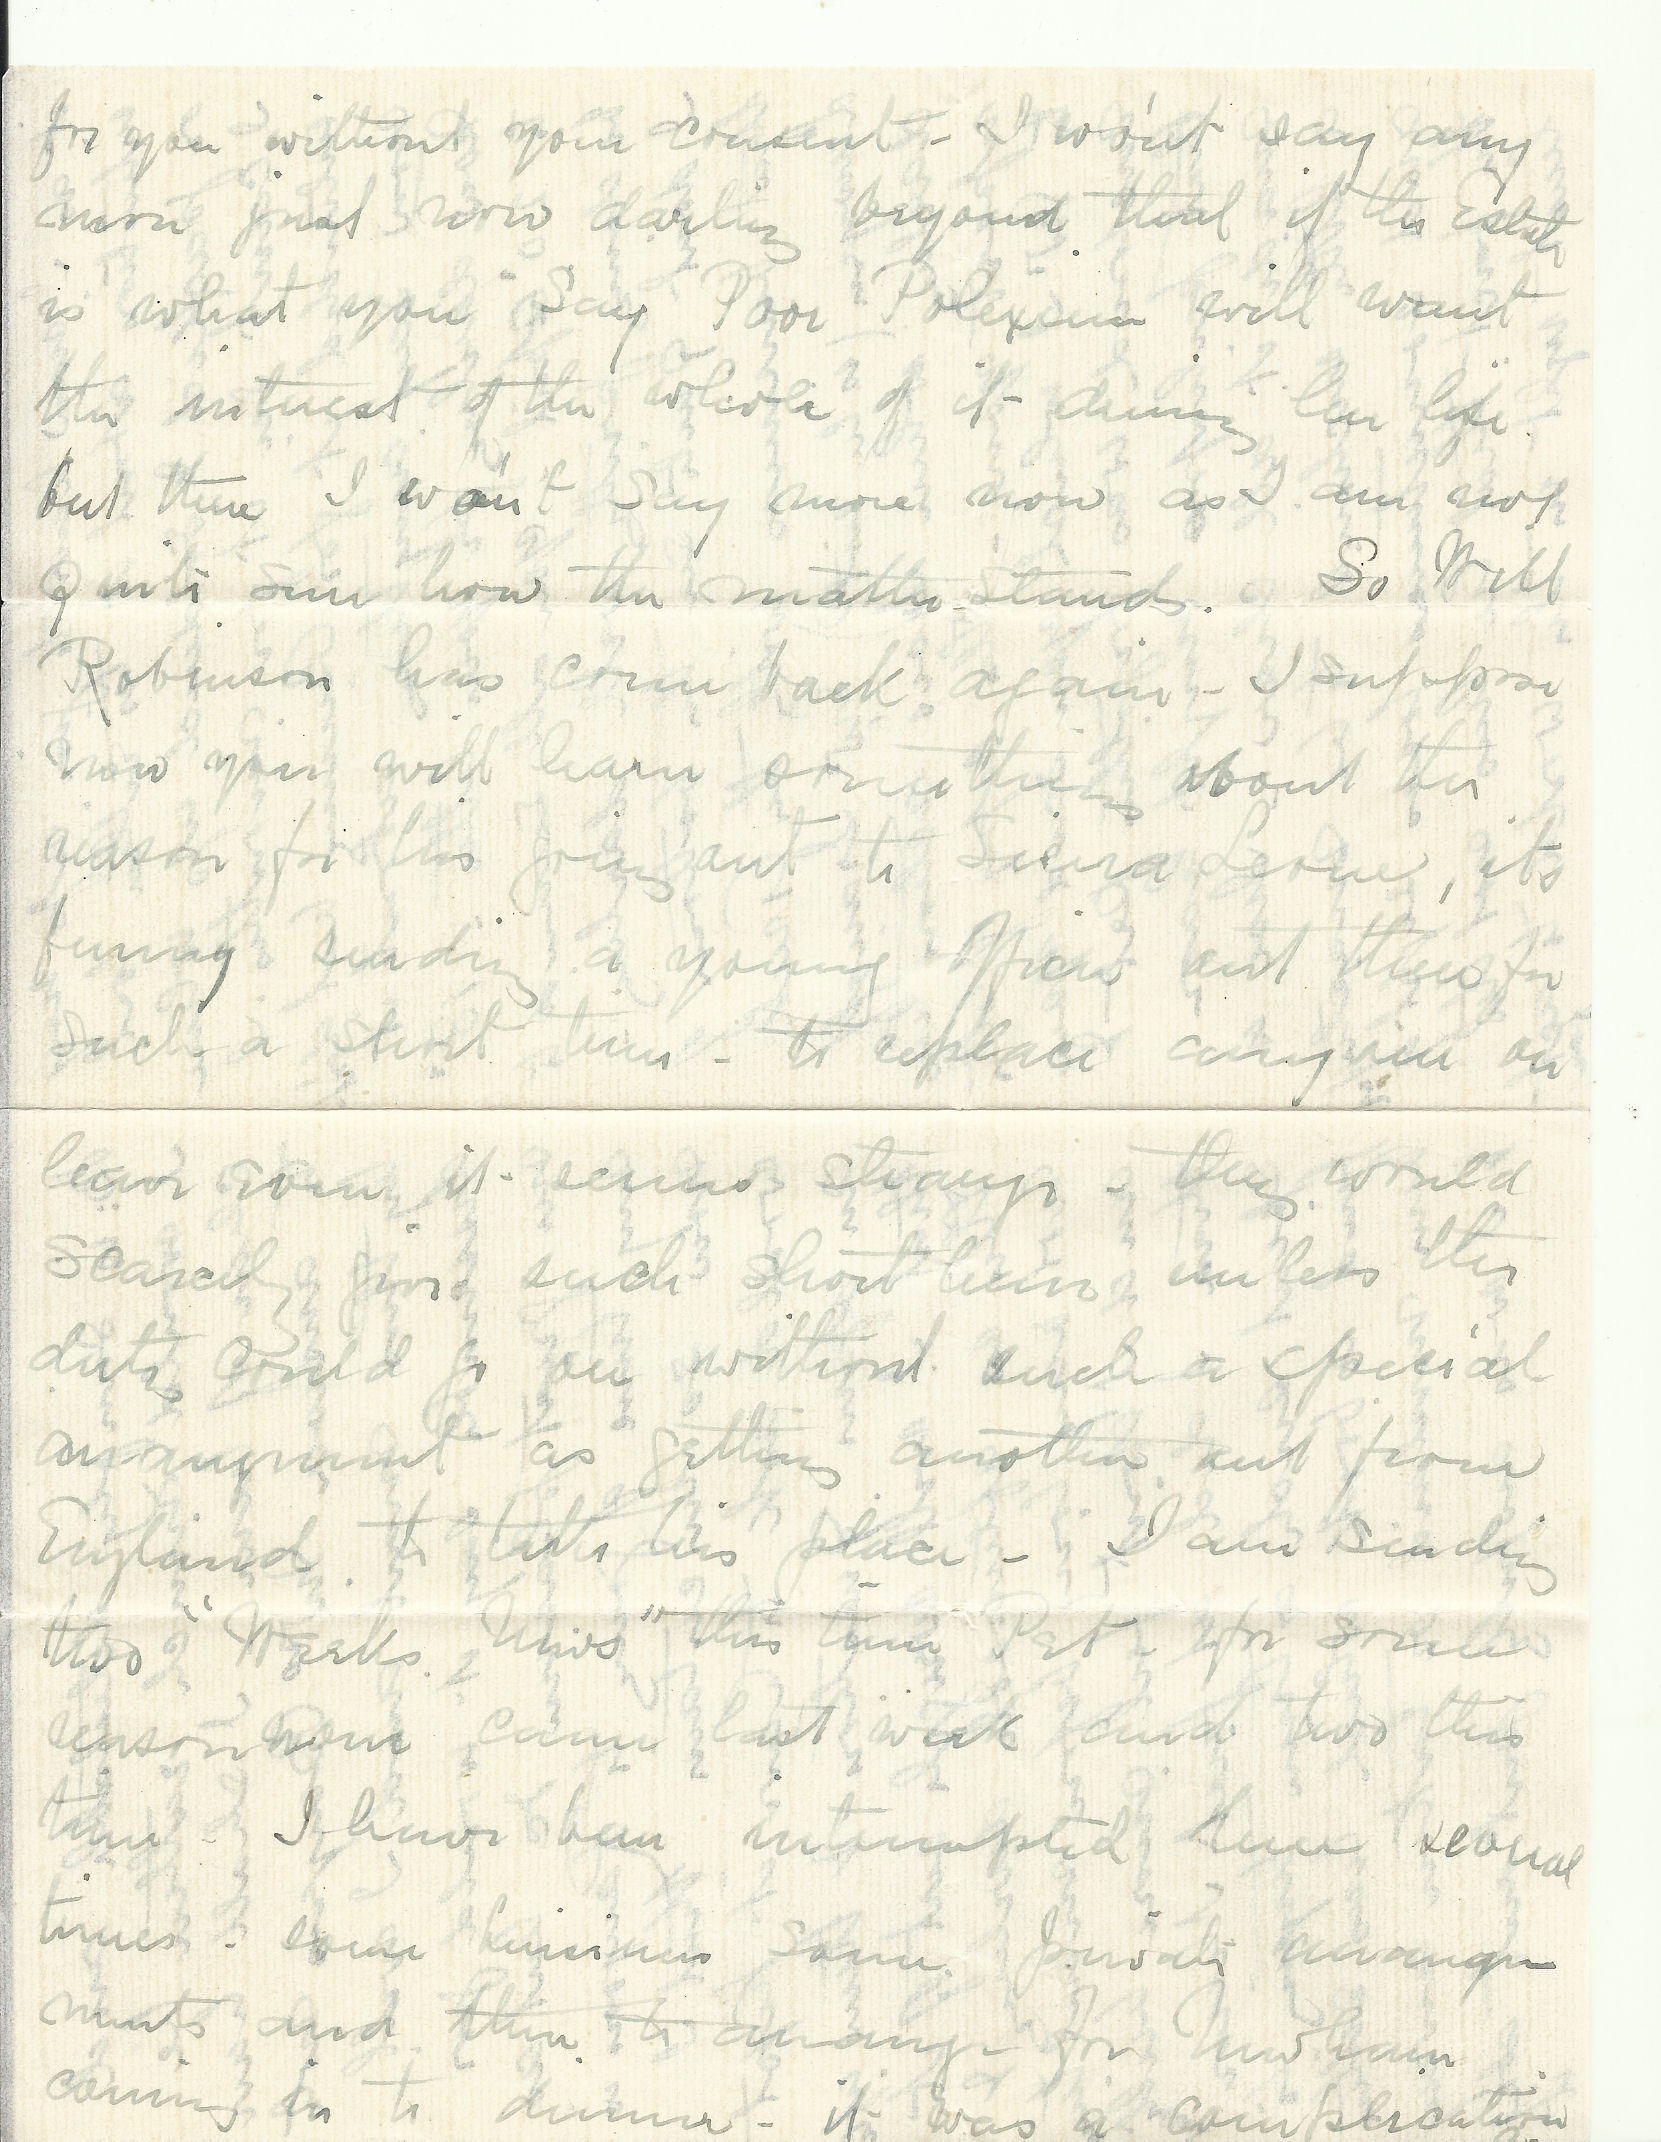 for you without your consent - I wo'nt say any
more just now darling beyond that if the Estate
is what you say Poor Polexima will want
the interest of the whole of it during her life.
but there I wo'nt say more now as I am not
quite sure how the matter stands. So Will
Robinson has come back again - I suppose
now you will learn something about the
reason for his going out to Sierra Leone, its
funny sending a young officer out there for
such a short time - to replace anyone on
leave even it seems strange - they would
scarcely give such short leave unless the
duties could go on without such a special
arrangement as getting another out from
England to take his place - I am sending
two "Weeks News" this time Pet - for some
reason none came last week and two this
time - I have been interrupted here several
times - some business some private arrange
ments and then to arrange for
coming in to dinner - it was a complication